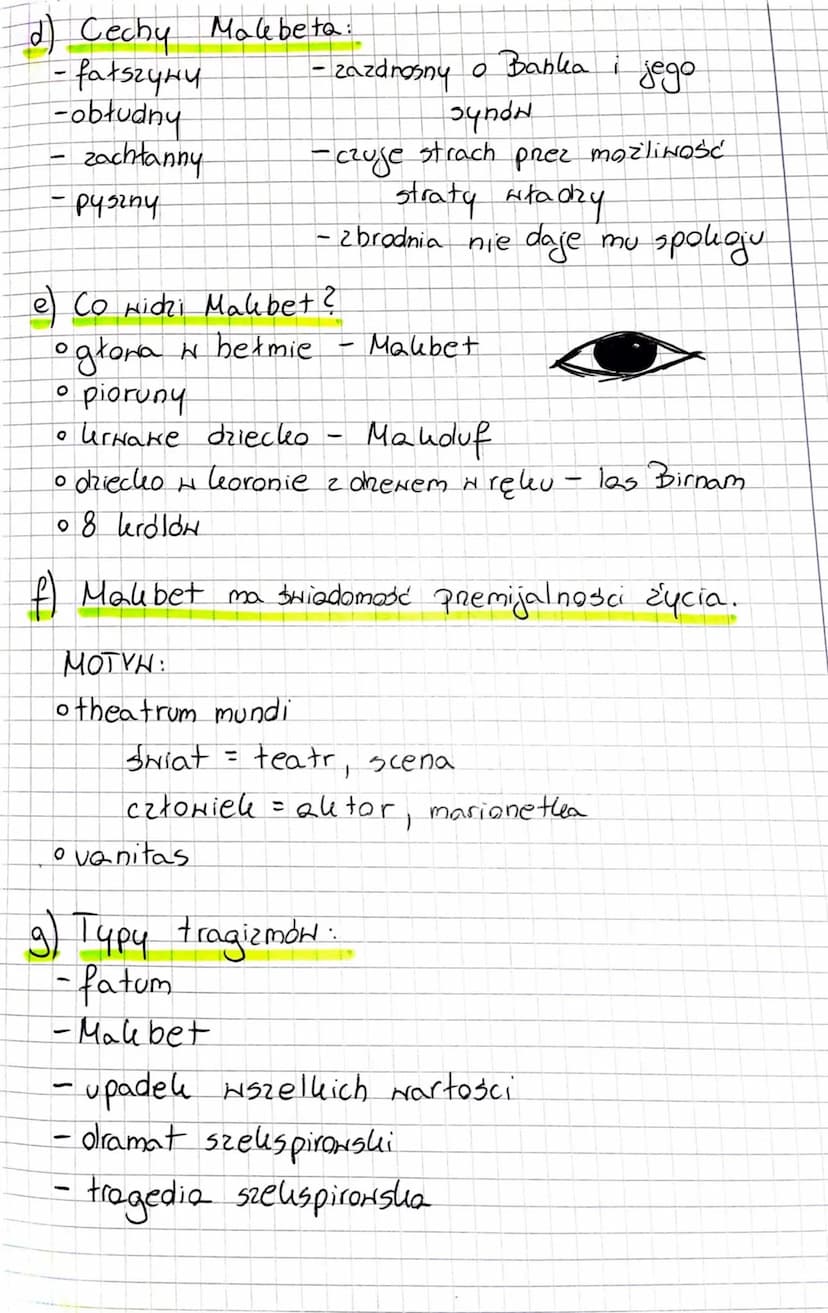 d) Cechy Makbeta:
- fałszywy
- obłudny
- zachłanny
- pyszny
- zazdrosny o Banka i jego
synów
- czuje strach przez możliwość
straty władzy
- zbrodnia nie daje mu spokoju
e) Co widzi Makbet?
o głowa w hełmie - Makbet
o pioruny
o krwawe dziecko - Makduf
o dziecko w koronie z drzewem w ręku - las Birnam
o 8 królów
f) Makbet ma świadomość przemijalności życia.
MOTYW:
o theatrum mundi
świat = teatr, scena
człowiek = aktor, marionetka
o vanitas
g) Typy tragizmów:
- fatum
- Makbet
- upadek wszelkich wartości
- dramat szekspirowski
- tragedia szekspirowska